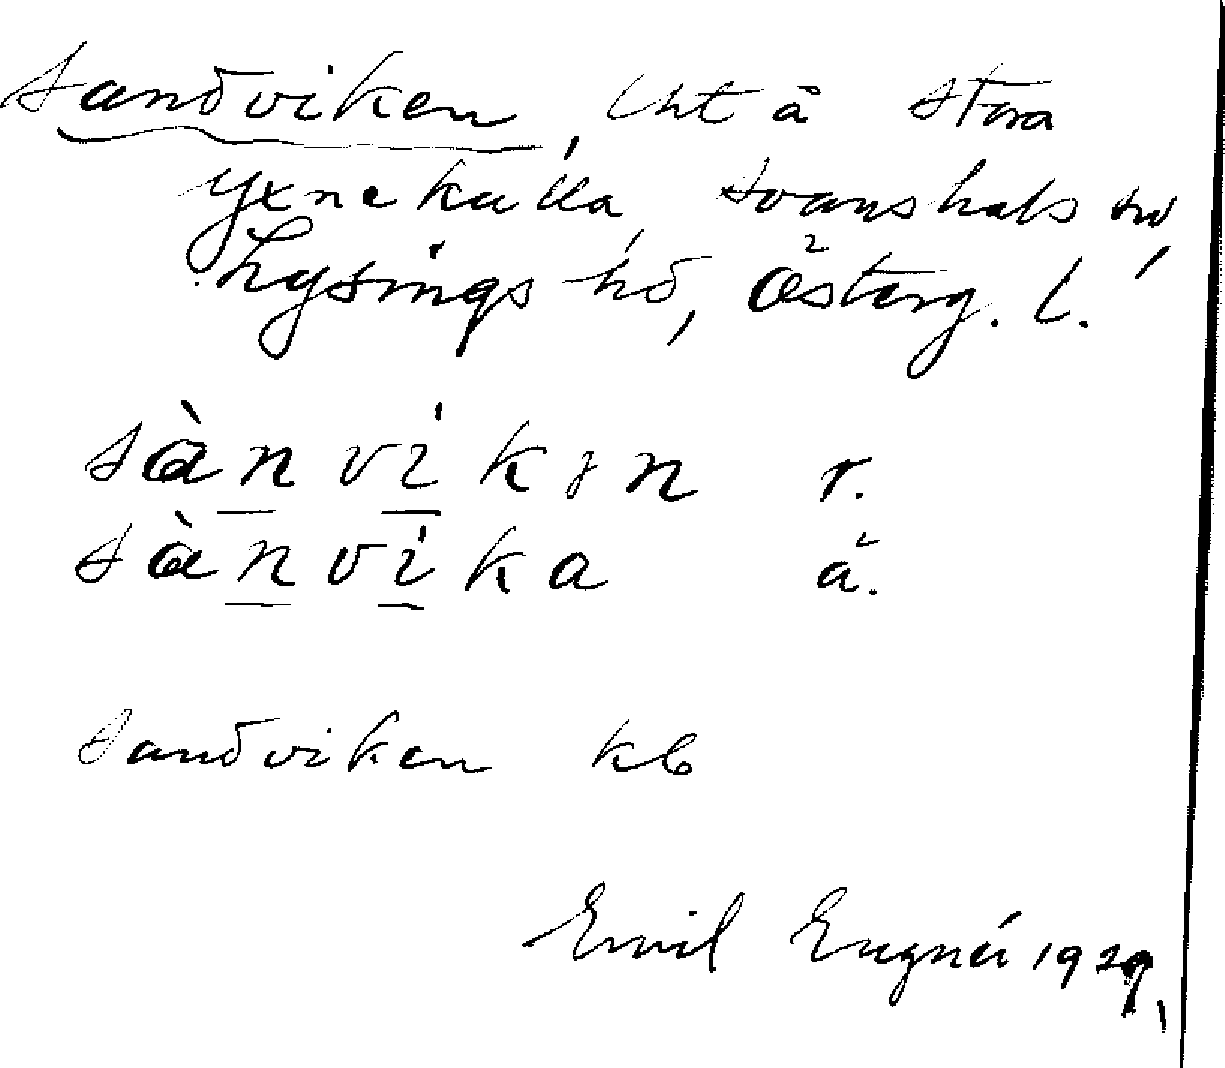 Sandviken, lht å Stora
Yxnekälla, Svanshals sn,
Lysings hd, Österg. l.
sànvikən r.
sànvika ä.
Sandviken kb
Emil Engnér 1929.